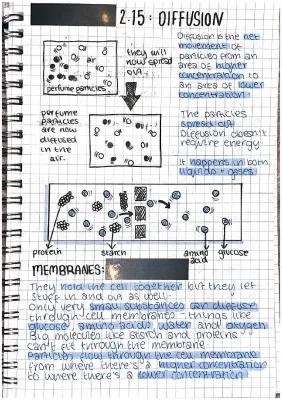 2.15: DIFFUSION
air
perfume particles
they will
now spread
out
perfume
particles
are now
diffused
in the
air.
Diffusion is the net
movement of
particles from an
area of higher
concentration to
an area of lower
concentration!
The particles
spread out
Diffusion doesn't
require energy
It happens in both
liquids + gases.
protein
starch
amino
acid
glucose
MEMBRANES:
They hold the cell together but they let
stuff in and out as well.
Only very small substances can diffuse
through cell membranes - things like
glucose, amino acids, water and oxygen
Big molecules like starch and proteins
can't fit through the membrane
Particles flow through the cell membrane
from where there's a higher concentration
to where there's a lower concentration